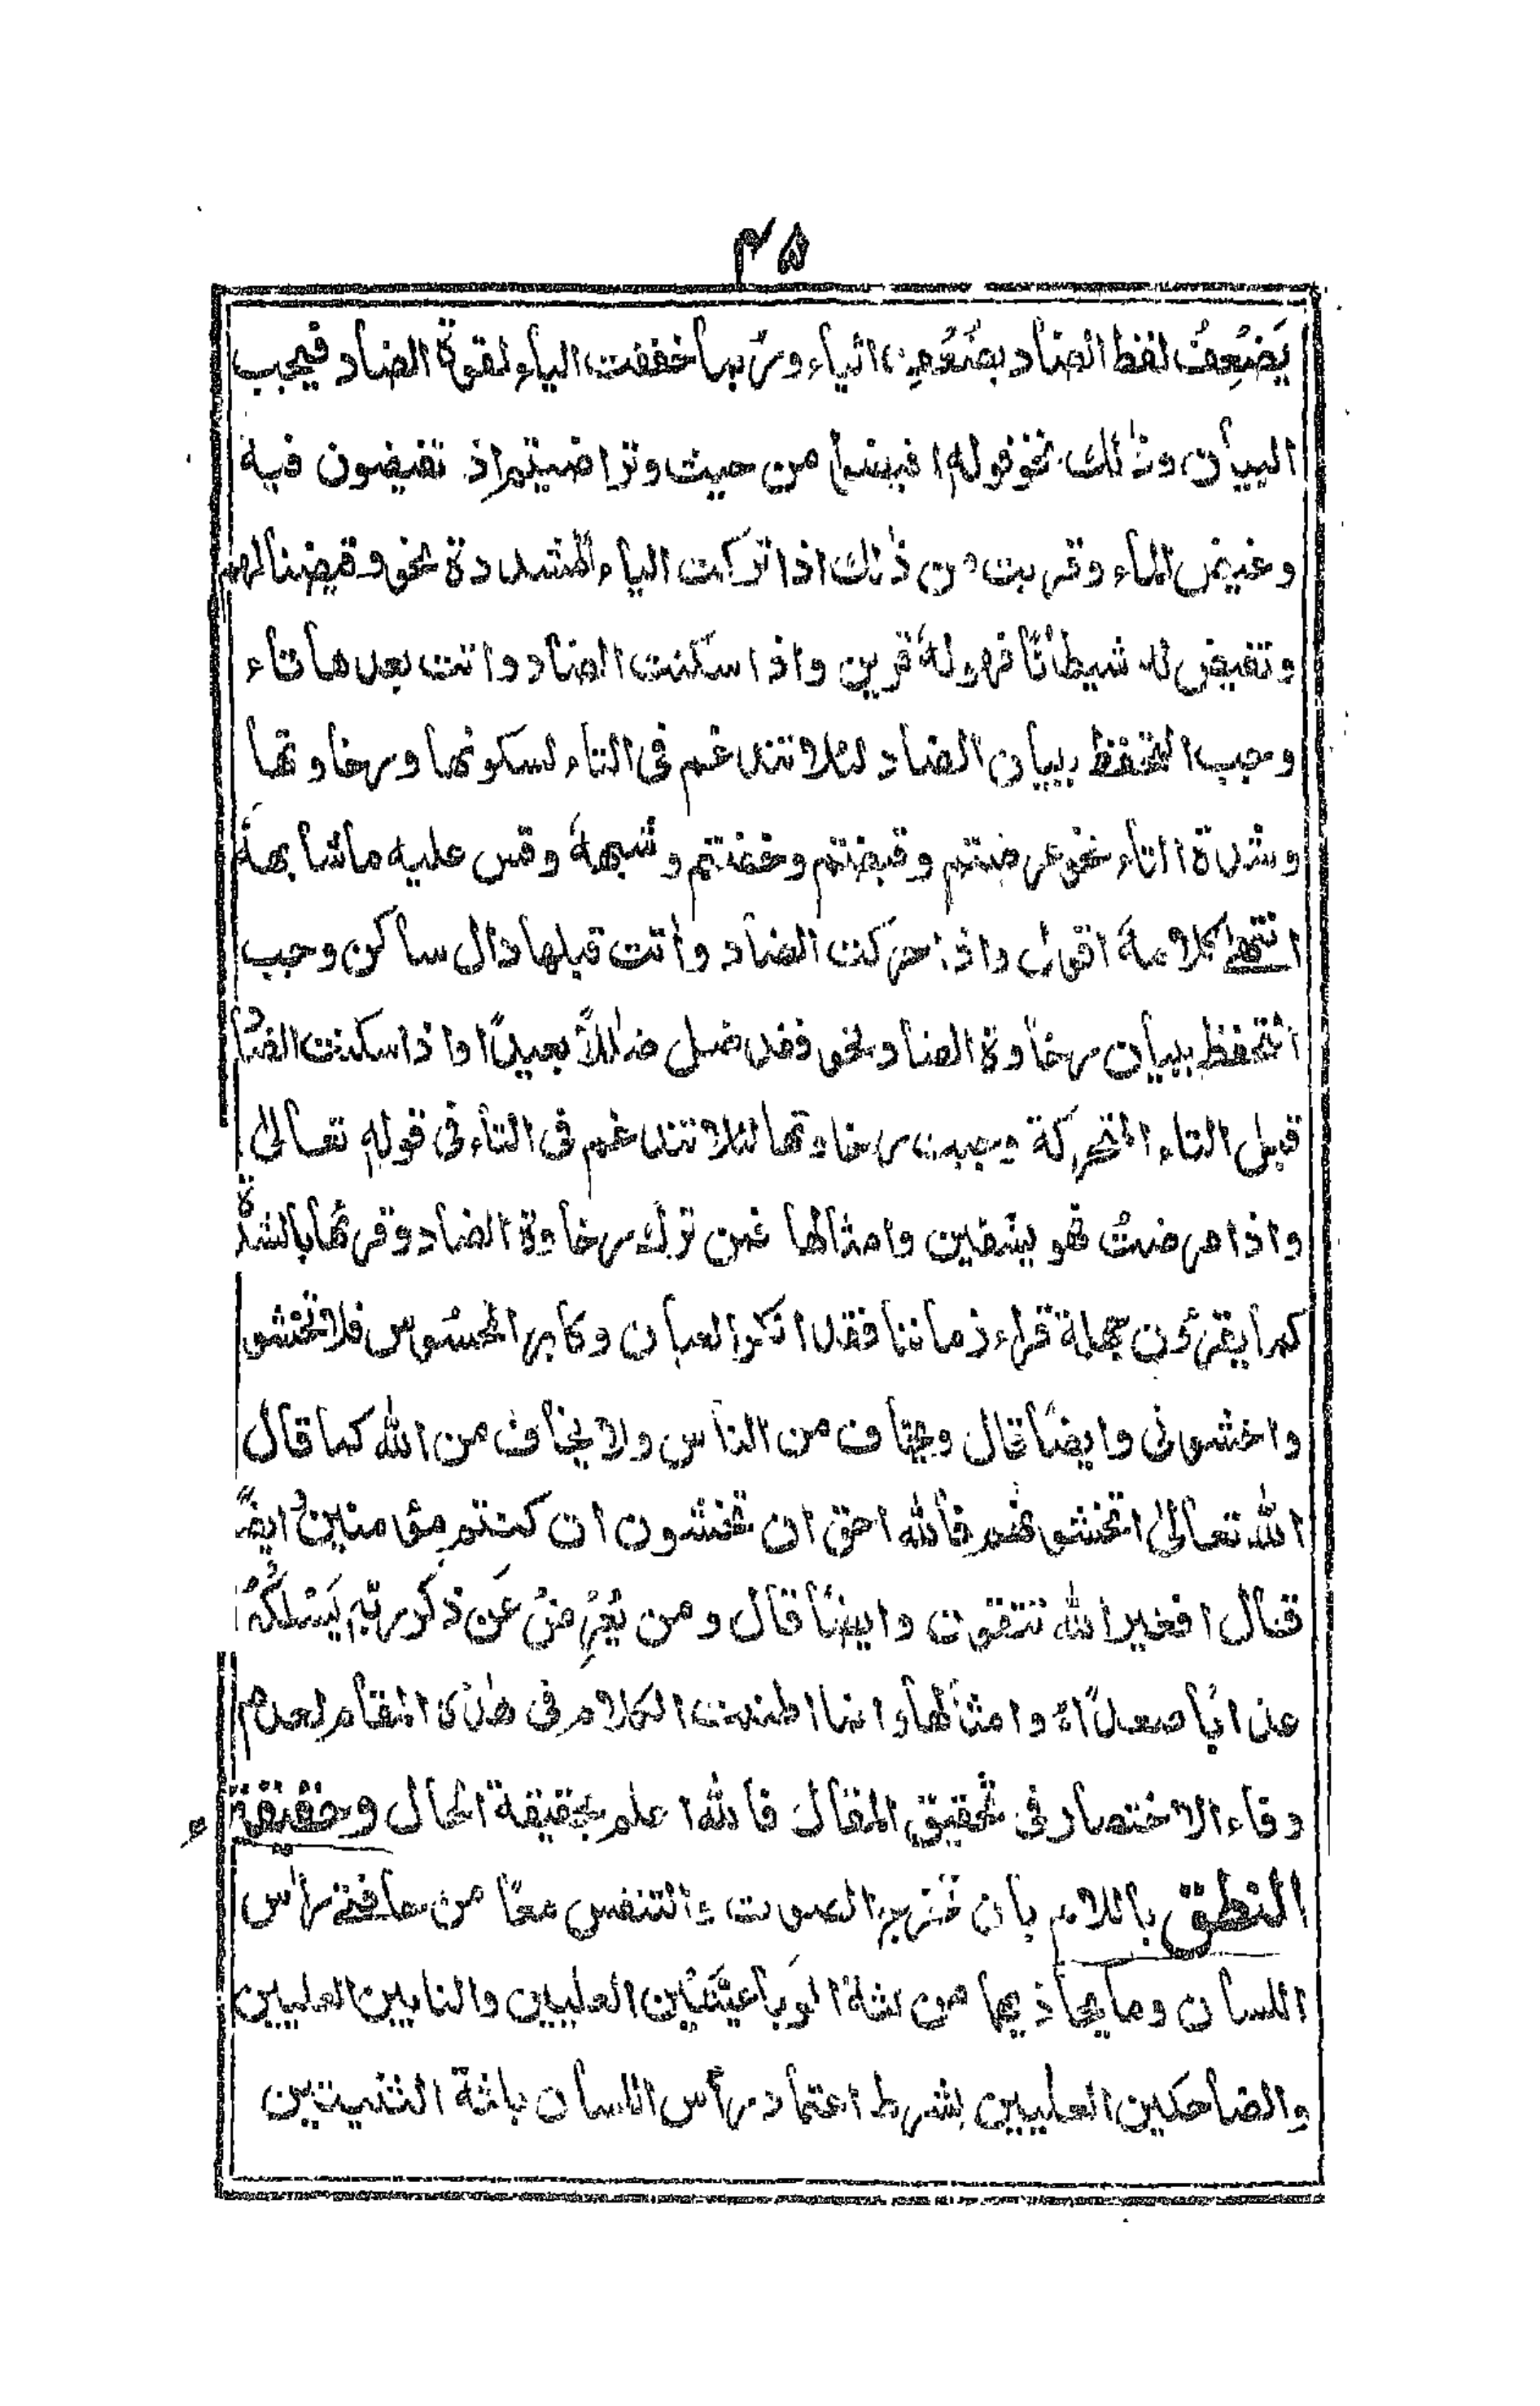 ۴۵
يَضْعِفُ لفظ الضاد بضُعْفِ الياء وربما خففت الياء لقوة الضاد فيجب
البيان وذٰلك نحو قوله افيضوا من حيث وتراضيتم اذ تفيضون فيه
وغيض الماء وقريب من ذٰلك اذا تركت الياء المشددة نحو وقيضنا لهم
ونقيض له شيطانًا فهو له قرين واذا سكنت الضاد واتت بعدها تاء
وجب التحفظ ببيان الضاد لئلا تندغم فى التاء لسكونها ورخاوتها
وشدة التاء نحو عرضتم وقبضتم وخضتم وشبهه وقس عليه ما شابهه
انتهٰى كلامه اقول واذا حركت الضاد واتت قبلها دال ساكن وجب
التحفظ ببيان رخاوة الضاد نحو فقد ضل ضلٰلاً بعيدًا واذا سكنت الضاد
قبل التاء المتحركة وجبت رخاوتها لئلا تندغم فى التاء فى قوله تعالىٰ
واذا مرضتُ فهو يشفين وامثالها فمن ترك رخاوة الضاد وقرئها بالشدة
كما يقرؤن جهلة قراء زماننا فقد انكر العيان وكابر المحسوس فلا تخشو
واخشونى وايضًا قال ويخاف من الناس ولا يخاف من الله كما قال
الله تعالىٰ اتخشونهم فالله احق ان تخشون ان كنتم مؤمنين وايضًا
قال افغير الله تتقون وايضًا قال ومن يُعْرِضْ عَن ذكر ربّه يَسْلُكْهُ
عذابًا صعدًا ه وامثالها وانما اطنبت الكلام فى هٰذى المقام لعدم
وفاء الاختصار فى تحقيق المقال فالله اعلم بحقيقة الحال وحقيقة
النطق باللام بان تخرج الصوت والتنفس معًا من حافتى راس
اللسان وما يحاذيها من لثة الرَبَاعيتَين العليين والنابين العليين
والضاحكين العليين بشرط اعتماد رأس اللسان بلثة الثنيتين